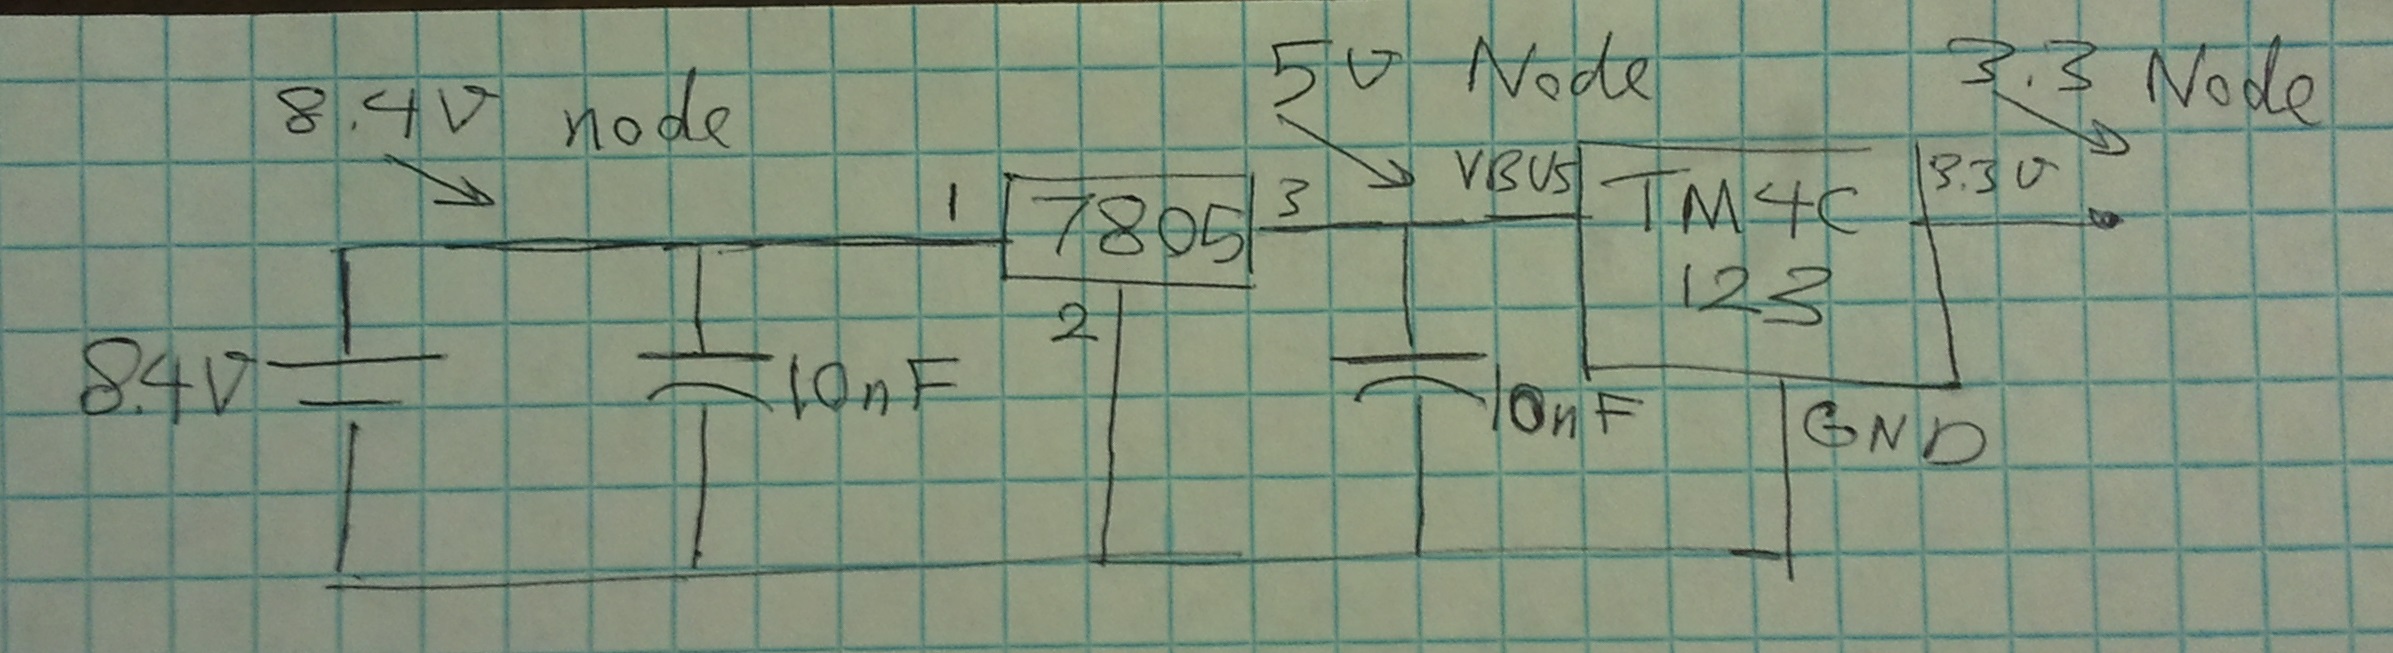 8.4V node
5V Node
3.3 Node
1
7805
3
VBUS
TM4C
123
3.3V
2
8.4V
10nF
10nF
GND